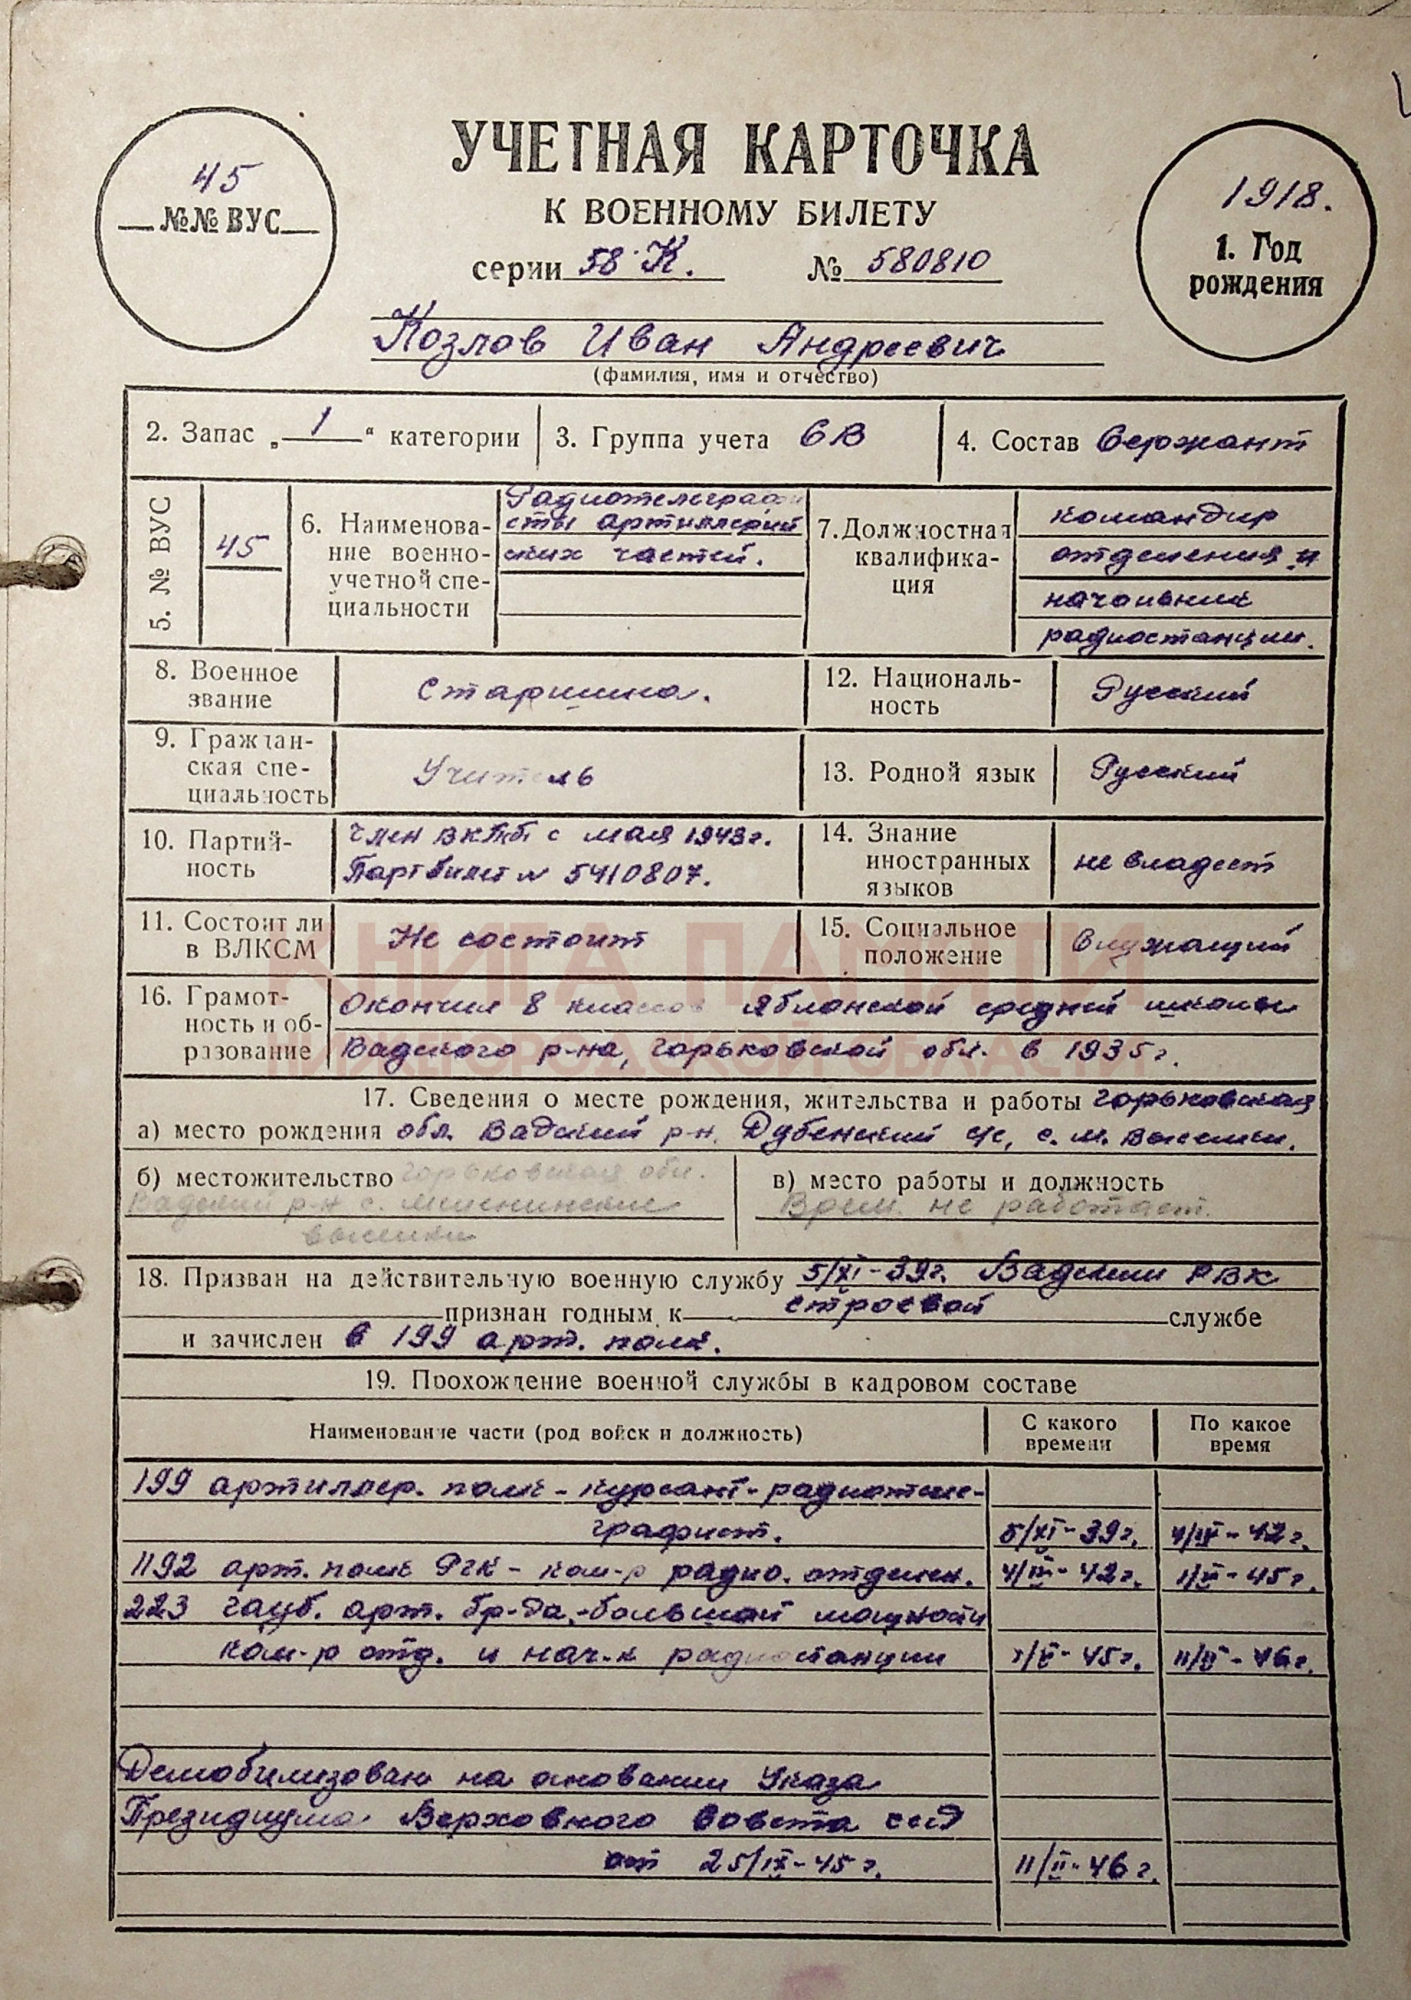 УЧЕТНАЯ КАРТОЧКА
К ВОЕННОМУ БИЛЕТУ
серии 58 К. № 580810
45
№№ ВУС
1918.
1. Год
рождения
Козлов Иван Андреевич
(фамилия, имя и отчество)
2. Запас „ 1 “ категории
3. Группа учета СВ
4. Состав Сержант
5. № ВУС
45
6. Наименова-
ние военно-
учетной спе-
циальности
Радиотелеграфи
сты артиллерий
ских частей.
7. Должностная
квалифика-
ция
командир
отделения и
начальник
радиостанции.
8. Военное
звание
Старшина.
9. Граждан-
ская спе-
циальность
Учитель
10. Партий-
ность
член ВКПб с мая 1943 г.
Партбилет № 5410807.
11. Состоит ли
в ВЛКСМ
Не состоит
12. Националь-
ность
Русский
13. Родной язык
Русский
14. Знание
иностранных
языков
не владеет
15. Социальное
положение
Служащий
16. Грамот-
ность и об-
разование
Окончил 8 классов Яблонской средней школы
Вадского р-на, Горьковской обл. в 1935 г.
17. Сведения о месте рождения, жительства и работы Горьковская
а) место рождения обл. Вадский р-н. Дубенский с/с, с. М. Выселки.
б) местожительство Горьковская обл.
Вадский р-н с.
выселки
в) место работы и должность
Врем. не работает.
18. Призван на действительную военную службу 5/XI-39г. Вадским РВК
признан годным к строевой службе
и зачислен в 199 арт. полк.
19. Прохождение военной службы в кадровом составе
Наименование части (род войск и должность)
С какого
времени
По какое
время
199 артиллер. полк - курсант-радиотеле-
графист. 5/XI-39г.
1192 арт. полк РГК - ком-р радио. отделен.
223 гауб. арт. бр-да,-большой мощности
ком-р отд. и нач-к радиостанции 11/II-46г.
Демобилизован на основании Указа
Президиума Верховного Совета СССР
от 25/IX-45 г. 11/II-46 г.
КНИГА ПАМЯТИ
НИЖЕГОРОДСКОЙ ОБЛАСТИ